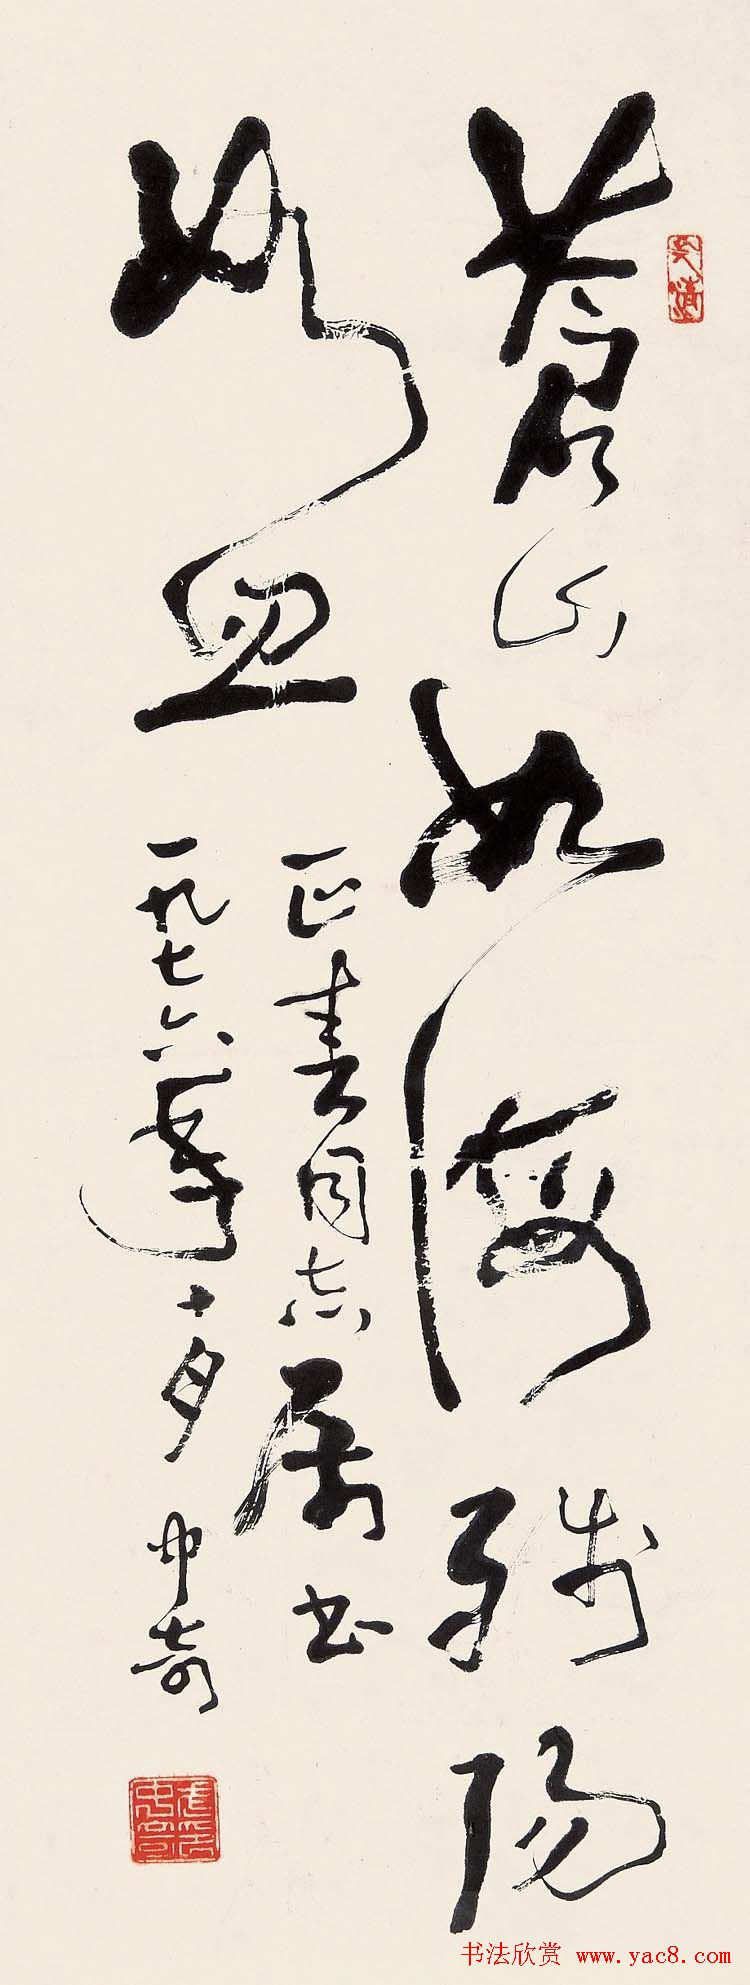 蒼山如海残陽
如血
正春同志属书
一九七六年十月 中奇
书法欣赏 www.yac8.com